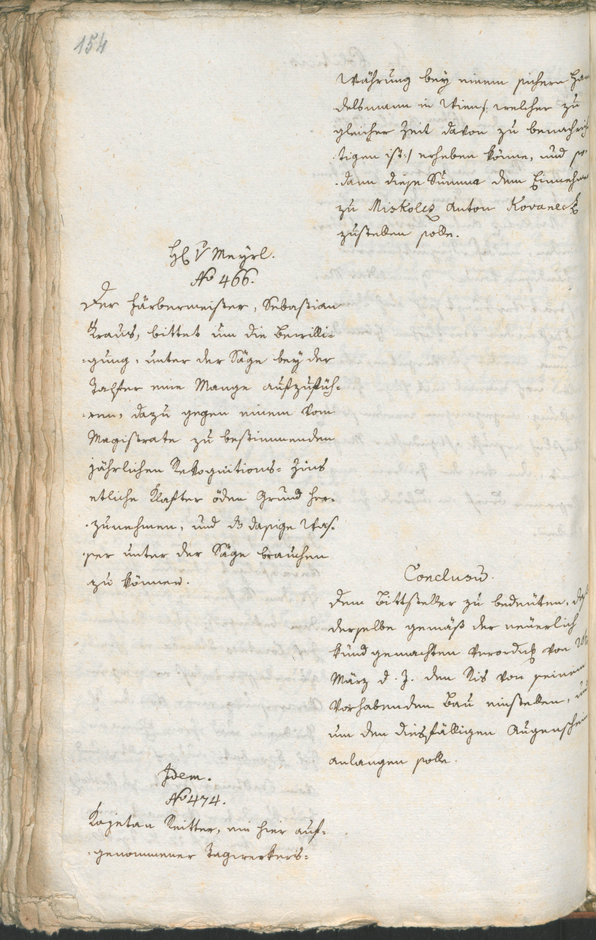 154
Währung bey einem sichern Han
delsmann in Wien /: welcher zu
gleicher Zeit davon zu benachrich
tigen ist :/ erheben könne, und so
dann diese Summe dem Einnehmer
zu Miskolcz Anton Kovanecz
zustellen solle.
H v Meyrl.
No 466.
Der Färbermeister, Sebastian
Kraus, bittet um die Bewilli-
gung, unter der Säge bey der
Talfer eine Mange aufzufüh-
ren, dazu gegen einem vom
Magistrate zu bestimmenden
jährlichen Rekognitions-Zins
etliche Klafter öden Grund her-
zunehmen, und das dasige Was-
ser unter der Säge brauchen
zu können.
Conclusum.
Dem Bittsteller zu bedeuten, daß
derselbe gemäß der neuerlich
kundgemachten Verordng von
März d. J. den Ris von seinem
vorhabenden Bau einstellen, und
um den diesfälligen Augenschein
anlangen solle.
Idem.
No 474.
Kajetan Reitter, ein hier auf-
genommener Tagwerkers-